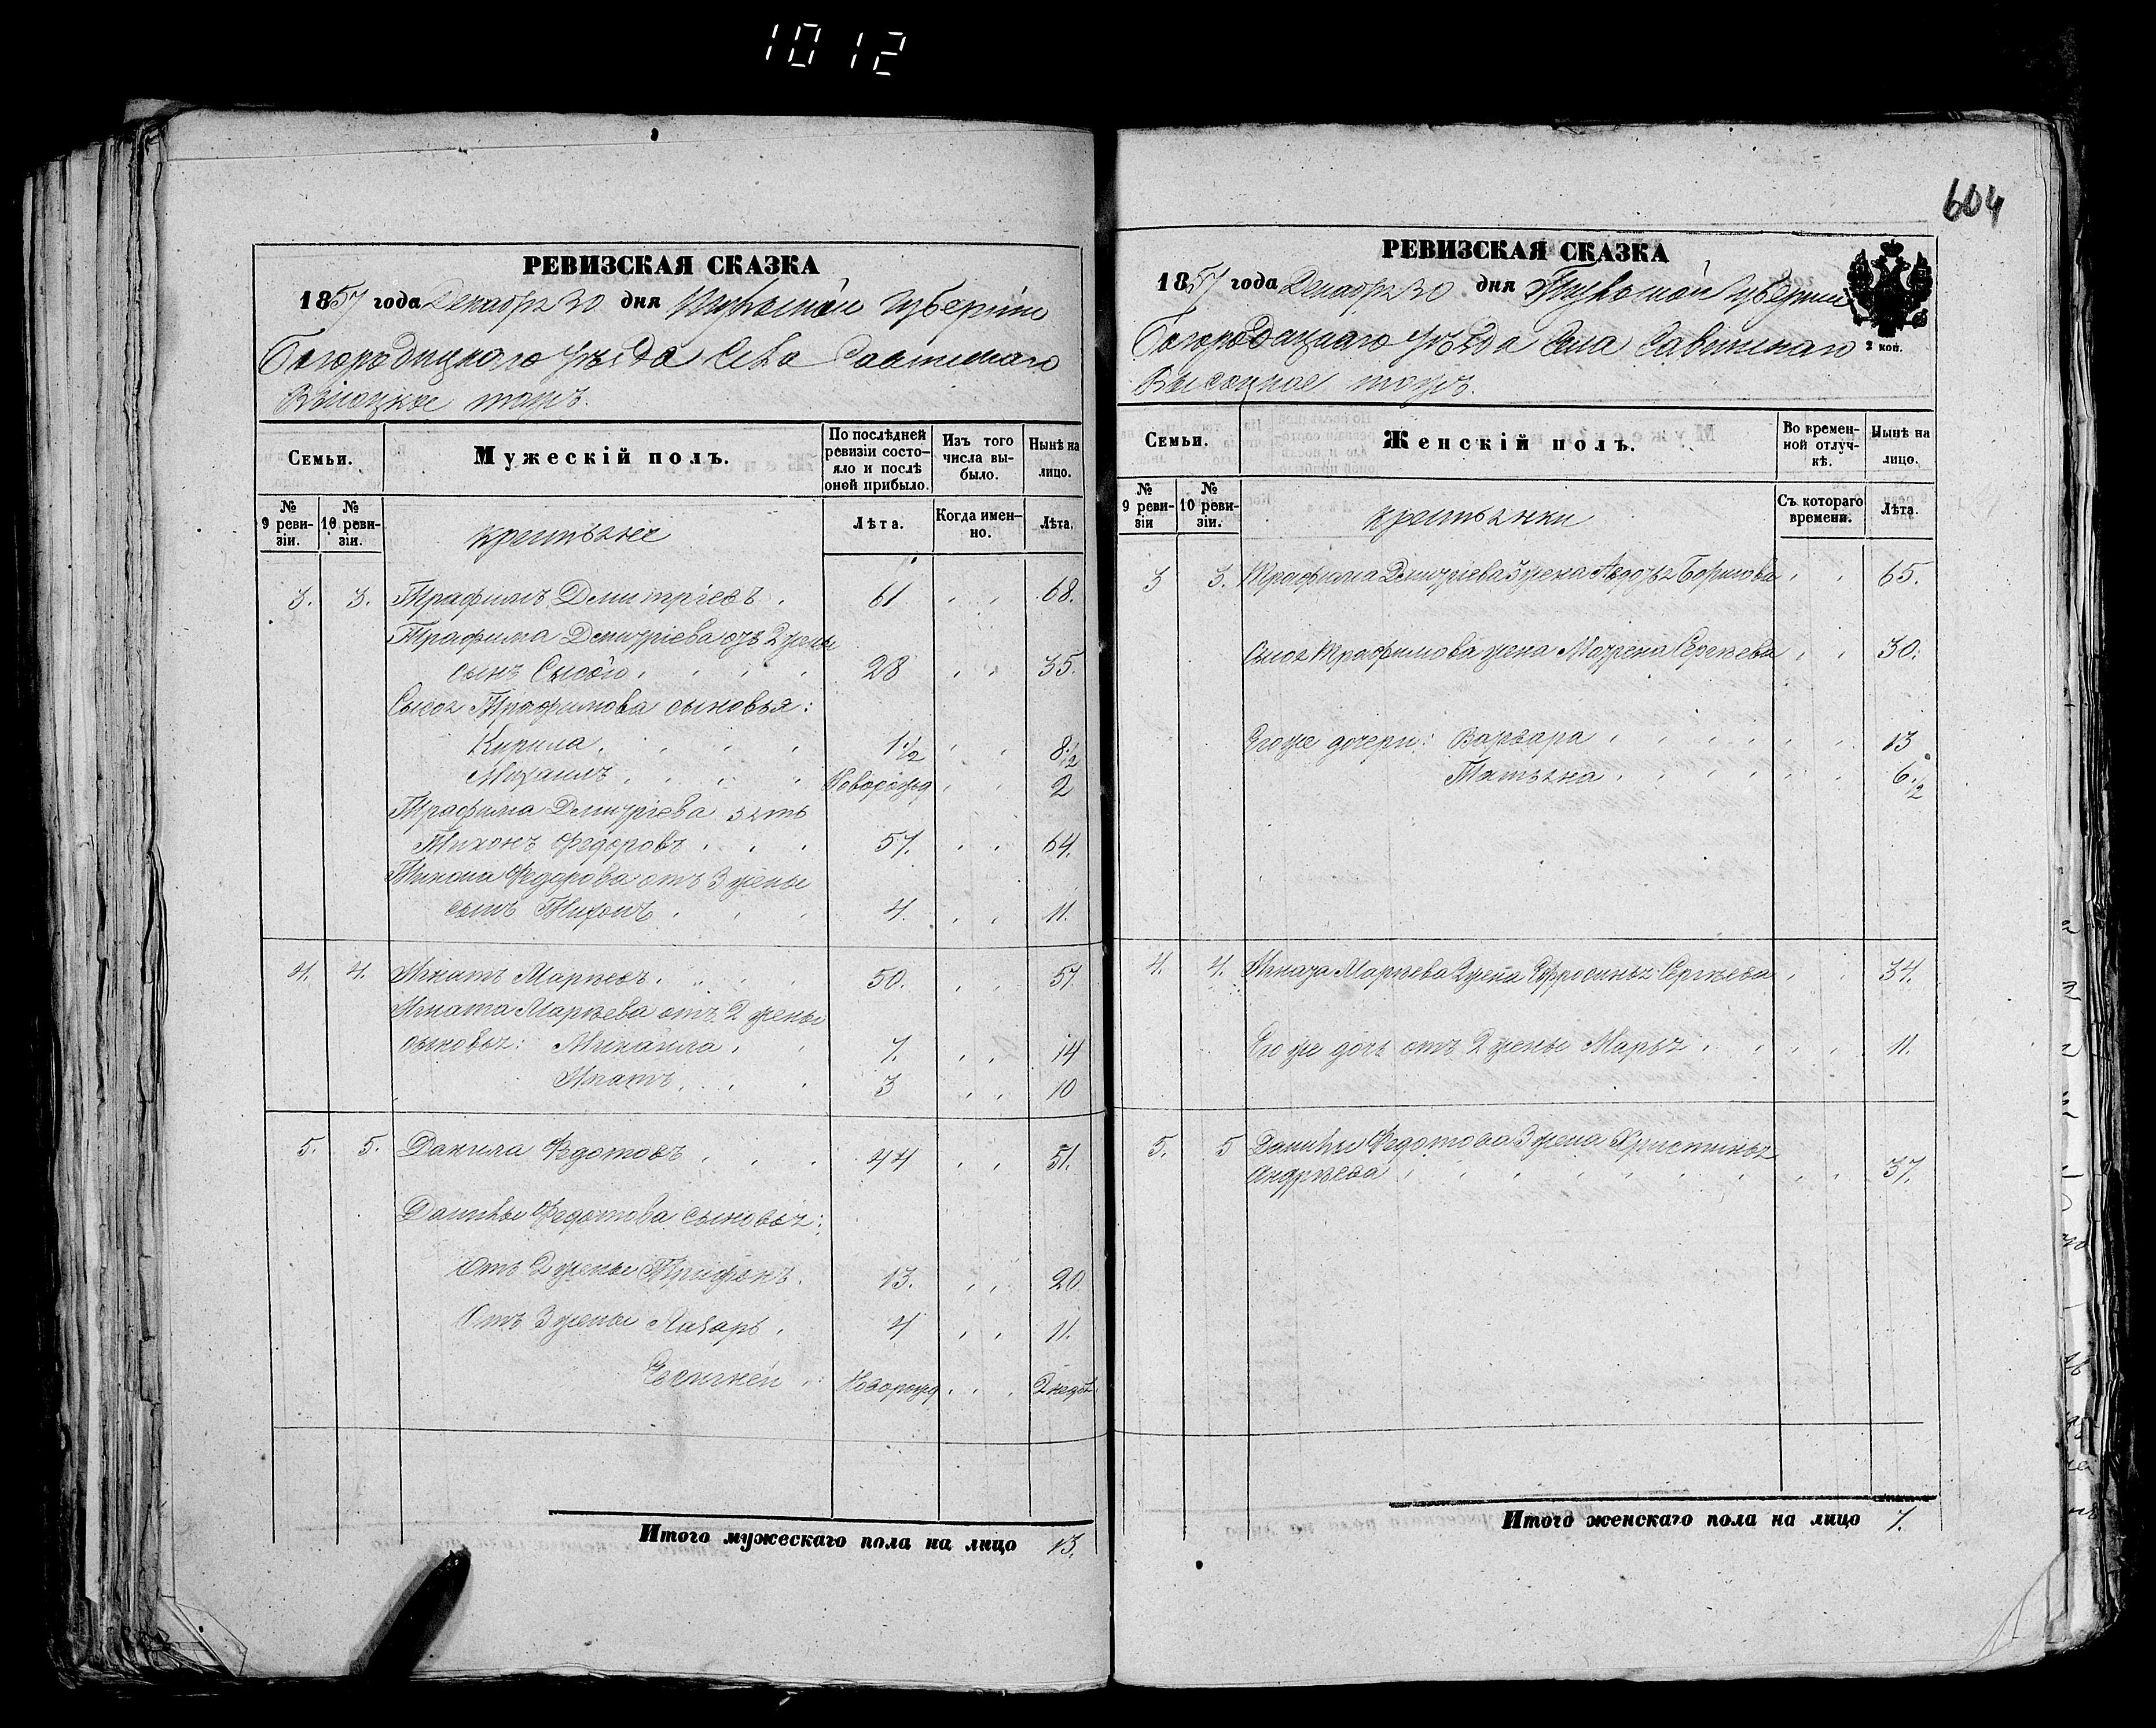 1012
604
РЕВИЗСКАЯ СКАЗКА
1857 года Декабря 30 дня Тульской губернии
Богородицкаго уѣзда Села
Высоцкое тожъ.
Семьи.
Мужескій полъ.
По послѣдней ревизіи состояло и послѣ оной прибыло.
Изъ того числа выбыло.
Нынѣ на лицо.
№ 9 ревизіи.
№ 10 ревизіи.
крестьяне
Лѣта.
Когда именно.
Лѣта.
3. 3. Трафимъ Дмитріевъ 61 68.
Трафима Дмитріева отъ 2 жены
сынъ Сысой 28 35.
Сысоя Трафимова сыновья:
Кирила 1 1/2 8 1/2
Михаилъ Новорожд 2
Трафима Дмитріева зять
Тихонъ Федоровъ 57. 64.
Тихона Федорова отъ 3 жены
сынъ Тихонъ 4. 11.
4. 4. Игнатъ 50. 57.
Игната отъ 2 жены
сыновья: Михайла 7. 14
3 10
5. 5. Данила Федотовъ 44 51.
Данилы Федотова сыновья:
Отъ 2 жены Трифонъ 13. 20
Отъ 3 жены Лазарь 4 11.
Новорожд 2 недѣл
Итого мужескаго пола на лицо 13.
РЕВИЗСКАЯ СКАЗКА
1857 года Декабря 30 дня Тульской губернии
2 коп.
Богородицкаго уѣзда Села
Высоцкое тожъ.
Семьи.
Женскій полъ.
Во временной отлучкѣ.
Нынѣ на лицо.
№ 9 ревизіи
№ 10 ревизіи.
крестьянки
Съ котораго времени.
Лѣта.
3 3. Трафима Дмитріева жена Авдотья Борисова 65.
Сысоя Трафимова жена Матрена Сергѣева 30.
Его же дочери: Варвара 13
Татьяна 6 1/2
4. 4. Игната 2 жена Ефросинья Сергѣева 34.
Его же дочь отъ 2 жены Марья 11.
5. 5 Данилы Федотова 3 жена Христинья
Андрѣева 37.
Итого женскаго пола на лицо 7.